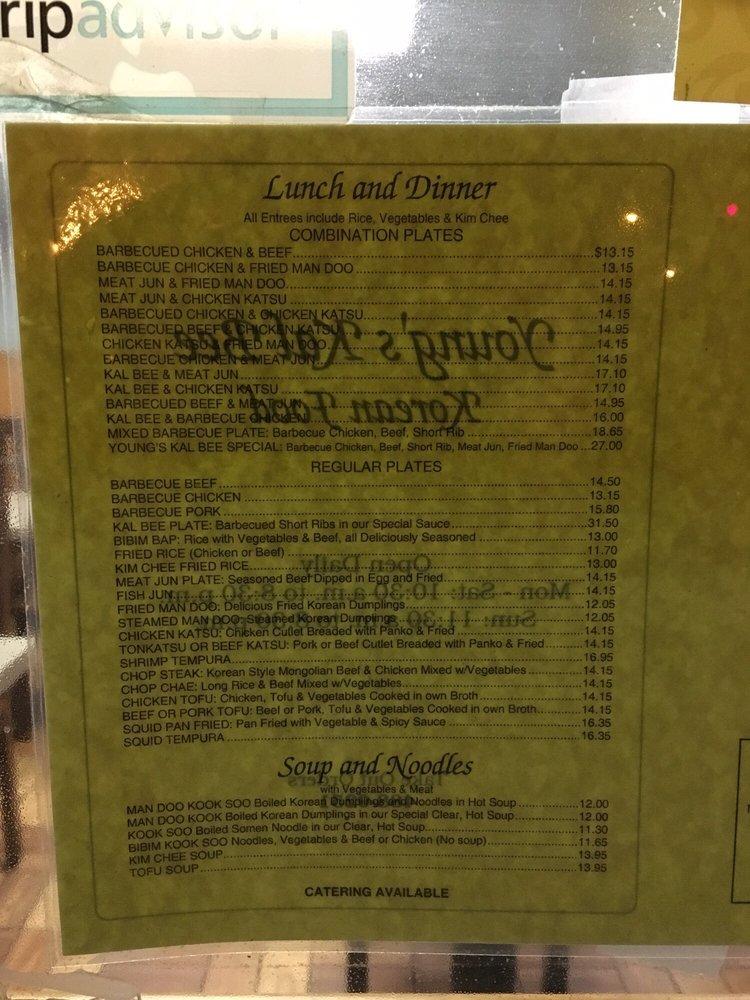 tripadvisor
Lunch and Dinner
All Entrees include Rice, Vegetables & Kim Chee
COMBINATION PLATES
BARBECUED CHICKEN & BEEF $13.15
BARBECUE CHICKEN & FRIED MAN DOO 13.15
MEAT JUN & FRIED MAN DOO 14.15
MEAT JUN & CHICKEN KATSU 14.15
BARBECUED CHICKEN & CHICKEN KATSU 14.15
BARBECUED BEEF & CHICKEN KATSU 14.95
CHICKEN KATSU & FRIED MAN DOO 14.15
BARBECUE CHICKEN & MEAT JUN 14.15
KAL BEE & MEAT JUN 17.10
KAL BEE & CHICKEN KATSU 17.10
BARBECUED BEEF & MEAT JUN 14.95
KAL BEE & BARBECUE CHICKEN 16.00
MIXED BARBECUE PLATE: Barbecue Chicken, Beef, Short Rib 18.65
YOUNG'S KAL BEE SPECIAL: Barbecue Chicken, Beef, Short Rib, Meat Jun, Fried Man Doo 27.00
REGULAR PLATES
BARBECUE BEEF 14.50
BARBECUE CHICKEN 13.15
BARBECUE PORK 15.80
KAL BEE PLATE: Barbecued Short Ribs in our Special Sauce 31.50
BIBIM BAP: Rice with Vegetables & Beef, all Deliciously Seasoned 13.00
FRIED RICE (Chicken or Beef) 11.70
KIM CHEE FRIED RICE 13.00
MEAT JUN PLATE: Seasoned Beef Dipped in Egg and Fried 14.15
FISH JUN 14.15
FRIED MAN DOO: Delicious Fried Korean Dumplings 12.05
STEAMED MAN DOO: Steamed Korean Dumplings 12.05
CHICKEN KATSU: Chicken Cutlet Breaded with Panko & Fried 14.15
TONKATSU OR BEEF KATSU: Pork or Beef Cutlet Breaded with Panko & Fried 14.15
SHRIMP TEMPURA 16.95
CHOP STEAK: Korean Style Mongolian Beef & Chicken Mixed w/Vegetables 14.15
CHOP CHAE: Long Rice & Beef Mixed w/Vegetables 14.15
CHICKEN TOFU: Chicken, Tofu & Vegetables Cooked in own Broth 14.15
BEEF OR PORK TOFU: Beef or Pork, Tofu & Vegetables Cooked in own Broth 14.15
SQUID PAN FRIED: Pan Fried with Vegetable & Spicy Sauce 16.35
SQUID TEMPURA 16.35
Soup and Noodles
with Vegetables & Meat
MAN DOO KOOK SOO Boiled Korean Dumplings and Noodles in Hot Soup 12.00
MAN DOO KOOK Boiled Korean Dumplings in our Special Clear, Hot Soup 12.00
KOOK SOO Boiled Somen Noodle in our Clear, Hot Soup 11.30
BIBIM KOOK SOO Noodles, Vegetables & Beef or Chicken (No soup) 11.65
KIM CHEE SOUP 13.95
TOFU SOUP 13.95
CATERING AVAILABLE
Young's Kal Bee
Korean Food
Open Daily
Mon - Sat: 10:30 a.m. to 8:30 p.m.
Sun: 11:30
Take Out Orders